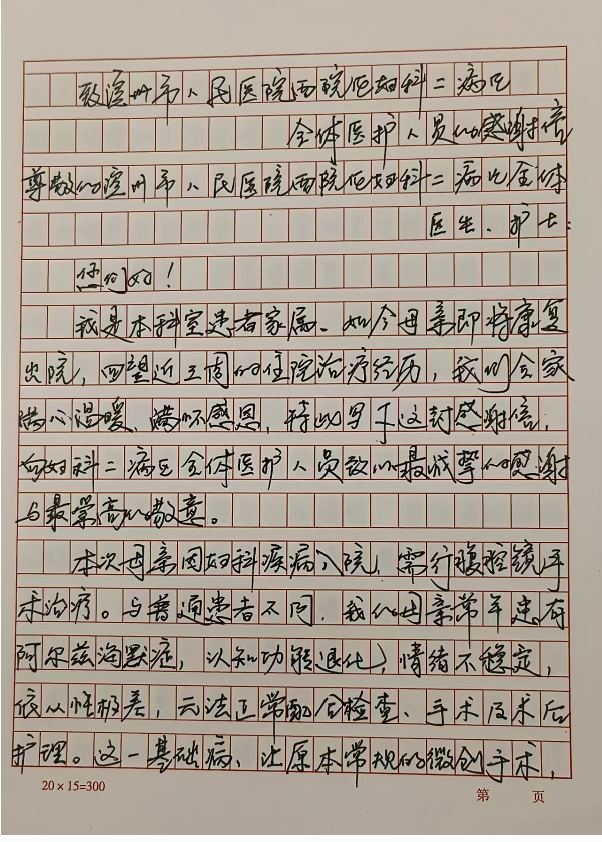 致滨州市人民医院西院区妇科二病区
全体医护人员的感谢信
尊敬的滨州市人民医院西院区妇科二病区全体
医生、护士:
您们好!
我是本科室患者家属、如今母亲即将康复
出院,回望近三周的住院治疗经历,我们全家
满心温暖、满怀感恩,特此写下这封感谢信,
向妇科二病区全体医护人员致以最诚挚的感谢
与最崇高的敬意。
本次母亲因妇科疾病入院,需行腹腔镜手
术治疗。与普通患者不同,我的母亲常年患有
阿尔兹海默症,认知功能退化,情绪不稳定,
依从性极差,无法正常配合检查、手术及术后
护理。这一基础病,让原本常规的微创手术,
20×15=300
第 页